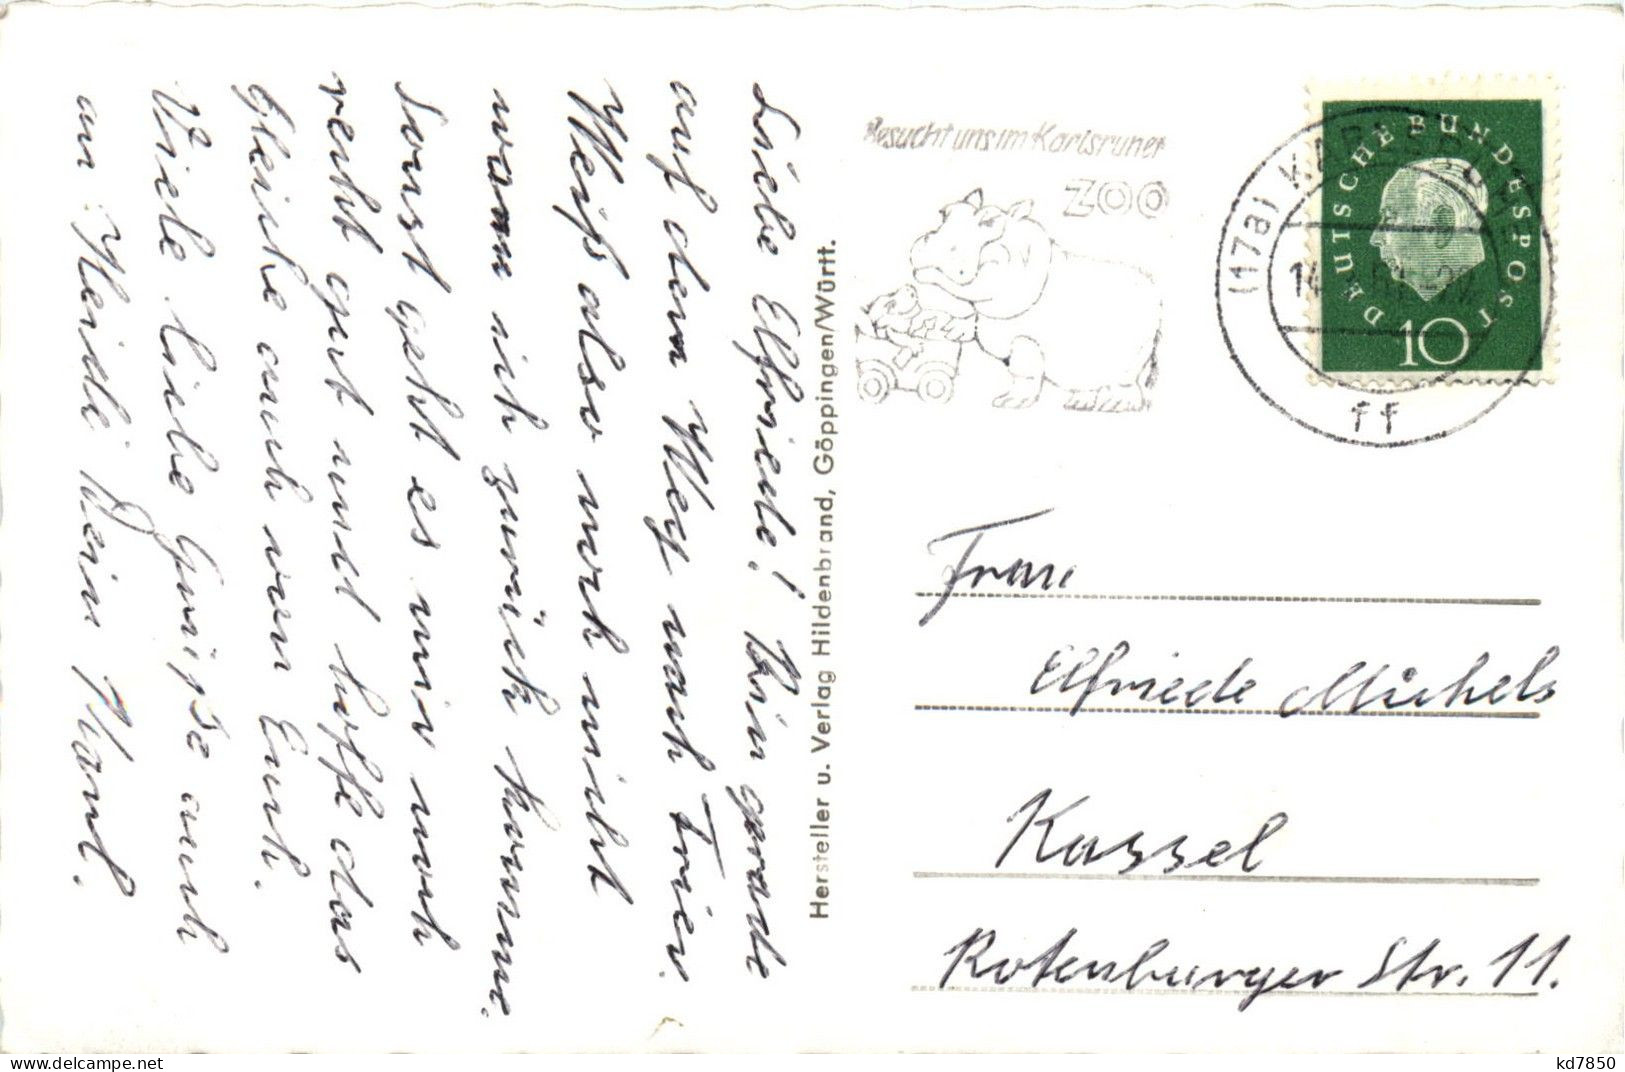 Liebe Elfriede! Bin gerade
auf dem Weg nach Trier.
Weiß also noch nicht
wann ich zurück komme.
Sonst geht es mir noch
recht gut und hoffe das
Gleiche auch von Euch.
Viele liebe Grüße auch
an Heidi Dein Karl.
Hersteller u. Verlag Hildenbrand, Göppingen/Württ.
Besucht uns im Karlsruher
ZOO
(17a) KARLSRUHE
14
ff
DEUTSCHE BUNDESPOST
10
Frau
Elfriede Michels
Kassel
Rotenburger Str. 11.
www.delcampe.net
kd7850